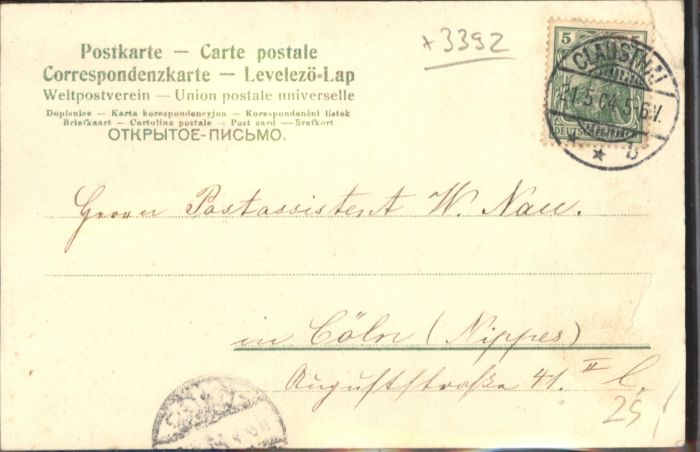 Postkarte — Carte postale
Correspondenzkarte — Levelező-Lap
Weltpostverein — Union postale universelle
Dopisnice — Karta korespondencyjna — Korespondenční lístek
Briefkaart — Cartolina postale — Post card — Brefkort
ОТКРЫТОЕ-ПИСЬМО.
+3392
5
DEUTSCHES REICH
21.5.04.5-6V.
b
Herrn Postassistent W. Nau.
in Cöln (Nippes)
Auguststraße 41. II l.
25